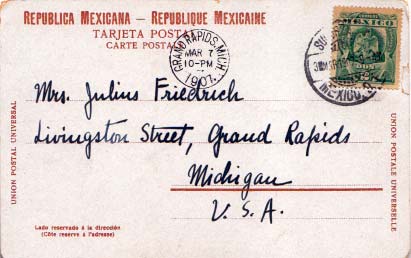 REPUBLICA MEXICANA – REPUBLIQUE MEXICAINE
TARJETA POSTAL
CARTE POSTALE
GRAND RAPIDS, MICH.
MAR 7
10-PM
1907
MEXICO
MEXICO
Mrs. Julius Friedrich
Livingston Street, Grand Rapids
Michigan
U. S. A.
UNION POSTAL UNIVERSAL
UNION POSTALE UNIVERSELLE
Lado reservado á la dirección
(Côte reservé à l'adresse)